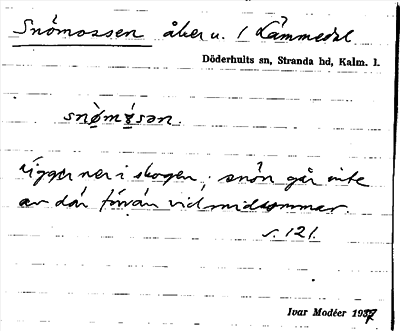 Snömossen åker u. 1 Lämmedal
Döderhults sn, Stranda hd, Kalm. l.
snø̀mɤ́sən.
ligger ner i skogen; snön går inte
av där förrän vid midsommar.
s. 121.
Ivar Modéer 1937